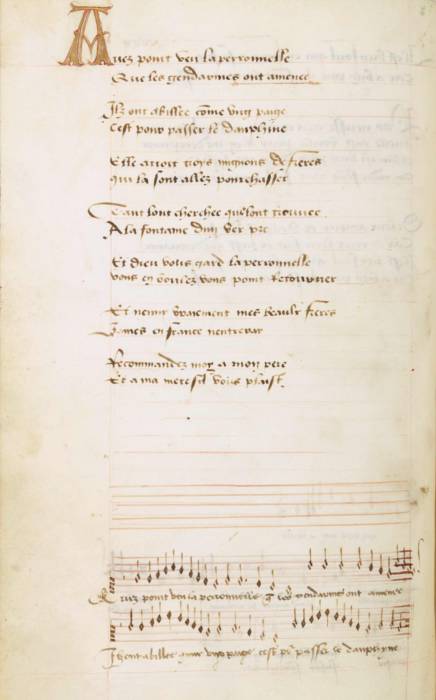 Avez point veu la perronnelle
Que les gendarmes ont amenee
Ilz ont abillee come ung paige
Cest pour passer le dauphine
Elle avoit troys mignons de freres
Qui la sont allez pourchasser
Tant lont cherchee que lont trouvee
A la fontaine dun vert pre
Et dieu vous gard la perronnelle
Vous en voulez vous point retourner
Et nenny vrayement mes beaulx freres
James en france nentreray
Recommandez moy a mon pere
Et a ma mere sil vous plaist
Avez point veu la perronnelle q les gendarmes ont amenee
Ilz ont abillee come ung paige cest pr passer le dauphyne